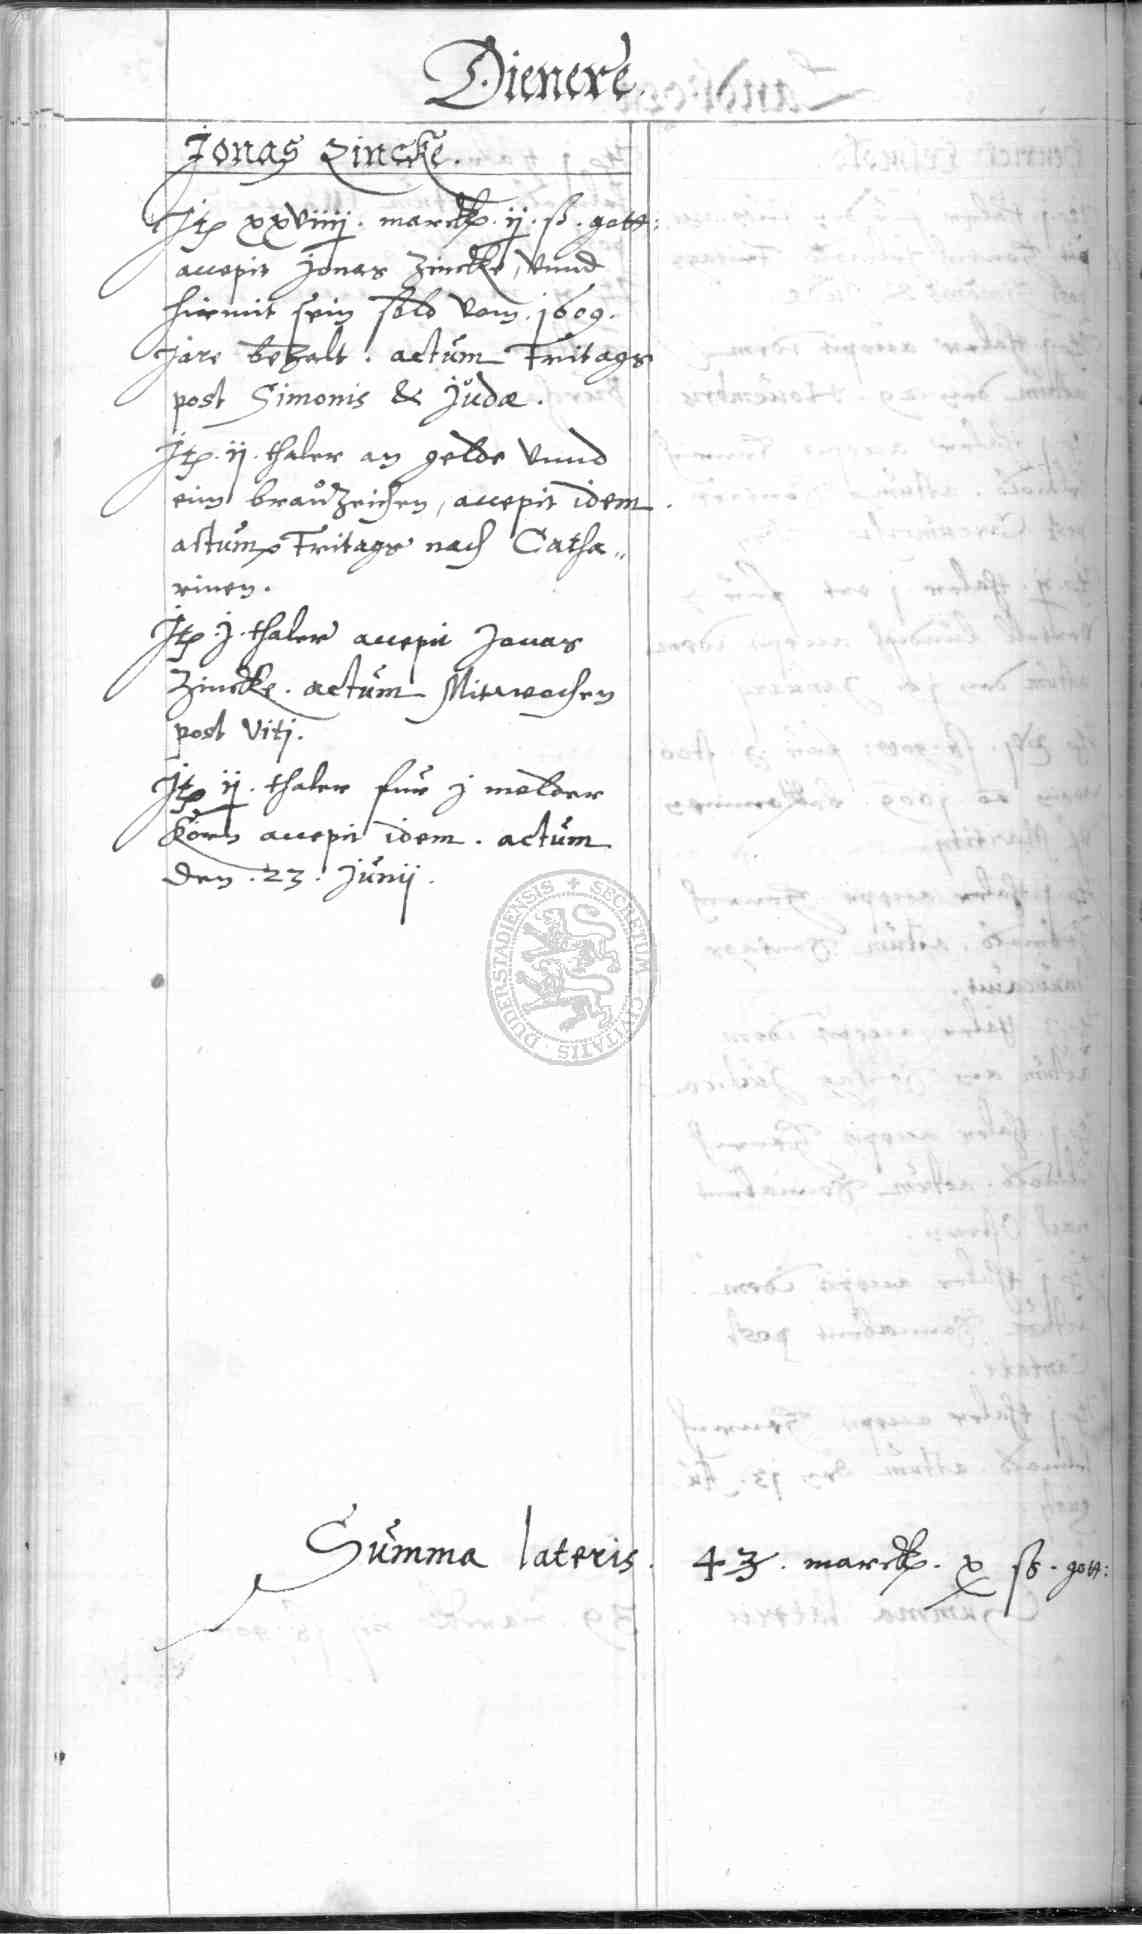 Dienere.
Jonas Zincke.
Jtz xxviiij. marck. ij. ß. gott:
accepit Jonas Zincke, vnnd
hiermit sein sold vom. 1609.
Jare bezalt. actum Fritags
post Simonis & Judæ.
Jtz. ij. thaler an gelde vnnd
eim brauzeichen, accepit idem.
actum Fritags nach Catha„
rinen.
Jtz. j. thaler accepit Jonas
Zincke. actum Mitwochen
post Viti.
Jtz ij. thaler fur j molder
Korn accepit idem. actum
den. 23. Junij.
SECRETUM CIVITATIS DUDERSTADIENSIS
Summa lateris. 43. marck. x ß. gott: